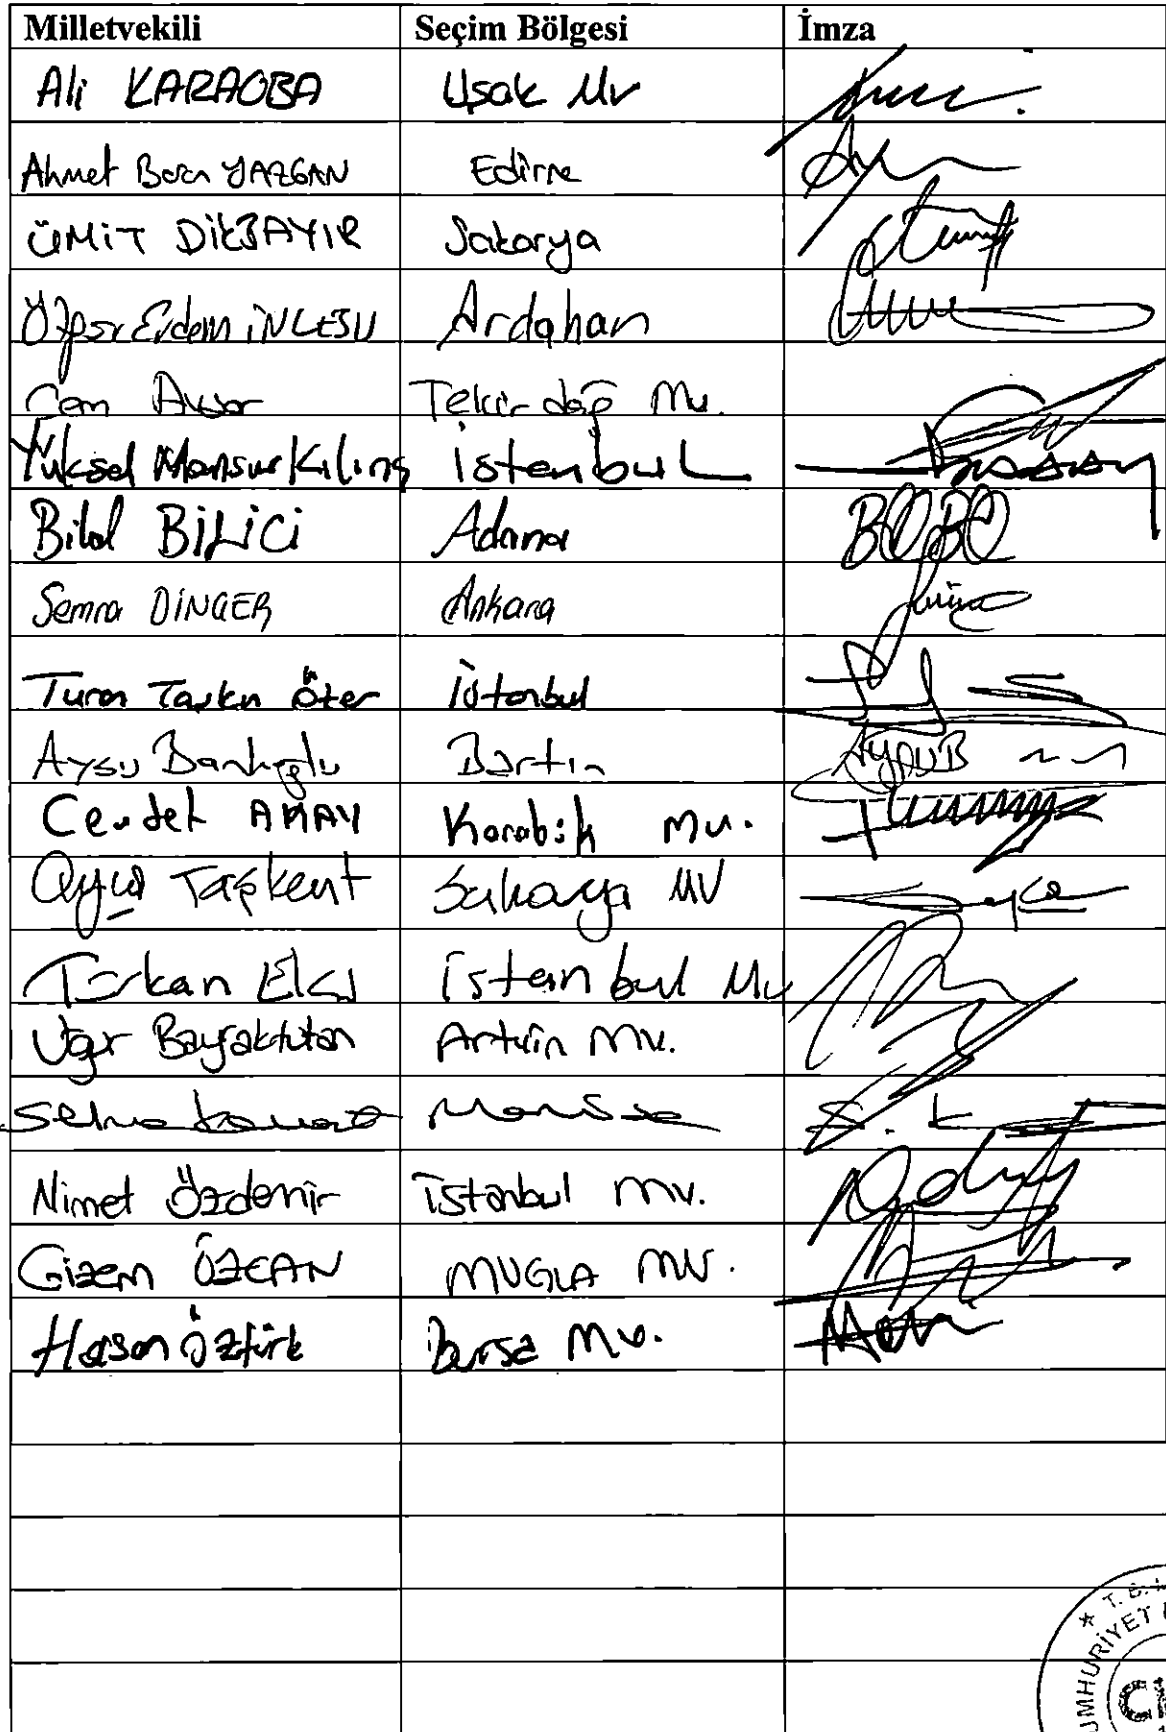 Milletvekili Seçim Bölgesi İmza
Ali KARAOBA Uşak Mv
Ahmet Baran YAZGAN Edirne
ÜMİT DİKBAYIR Sakarya
Özgür Erdem İNCESU Ardahan
Cem Avşar Tekirdağ Mv.
Yüksel Mansur Kılınç İstanbul
Bilal BİLİCİ Adana
Semra DİNÇER Ankara
Turan Taşkın Özer İstanbul
Aysu Bankoğlu Bartın
Cevdet AKAY Karabük Mv.
Ayça Taşkent Sakarya MV
Türkan Elçi İstanbul Mv
Uğur Bayraktutan Artvin Mv.
Selma Manisa S. K
Nimet Özdemir İstanbul Mv.
Gizem ÖZCAN MUĞLA MV.
Hasan Öztürk Bursa Mv.